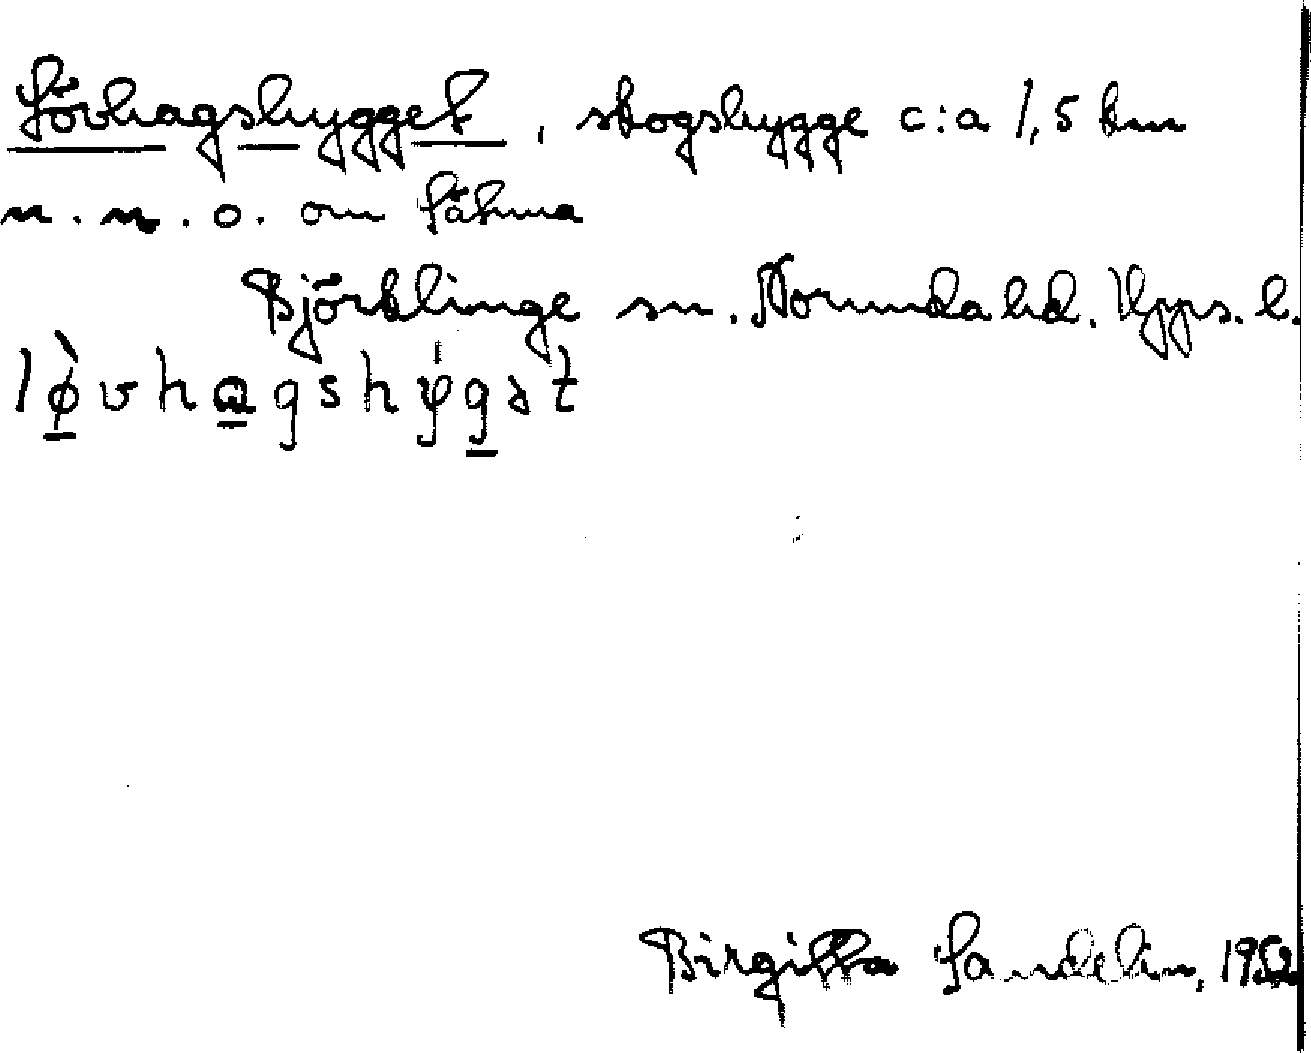 Lövhagshygget, skogshygge c:a 1,5 km
n.n.ö. om Sätuna
Björklinge sn. Norunda hd. Upps. l.
lø̀vhɑgshy̍gət
Birgitta Sandelin, 1952